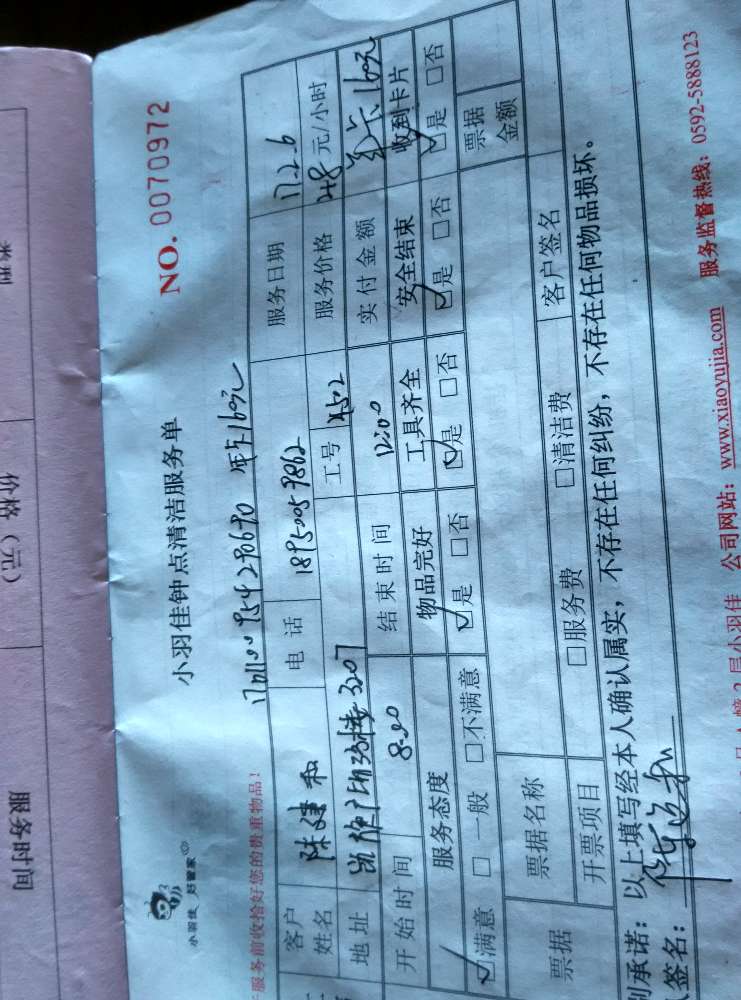 类型
价格（元）
服务时间
NO. 0070972
小羽佳钟点清洁服务单
小羽佳 好管家
服务前收拾好您的贵重物品！
年卡160元
客户姓名 陈建和 电话 服务日期 17.2.6
地址 3207 工号 服务价格 48元/小时
开始时间 8:00 结束时间 12:00 实付金额 年卡160元
服务态度 物品完好 工具齐全 安全结束 收到卡片
☑满意 □一般 □不满意 ☑是 □否 ☑是 □否 ☑是 □否 ☑是 □否
票据 票据名称 票据金额
开票项目 □服务费 □清洁费 客户签名
承诺：以上填写经本人确认属实，不存在任何纠纷，不存在任何物品损坏。
签名：
2层小羽佳 公司网站：www.xiaoyujia.com 服务监督热线：0592-5888123